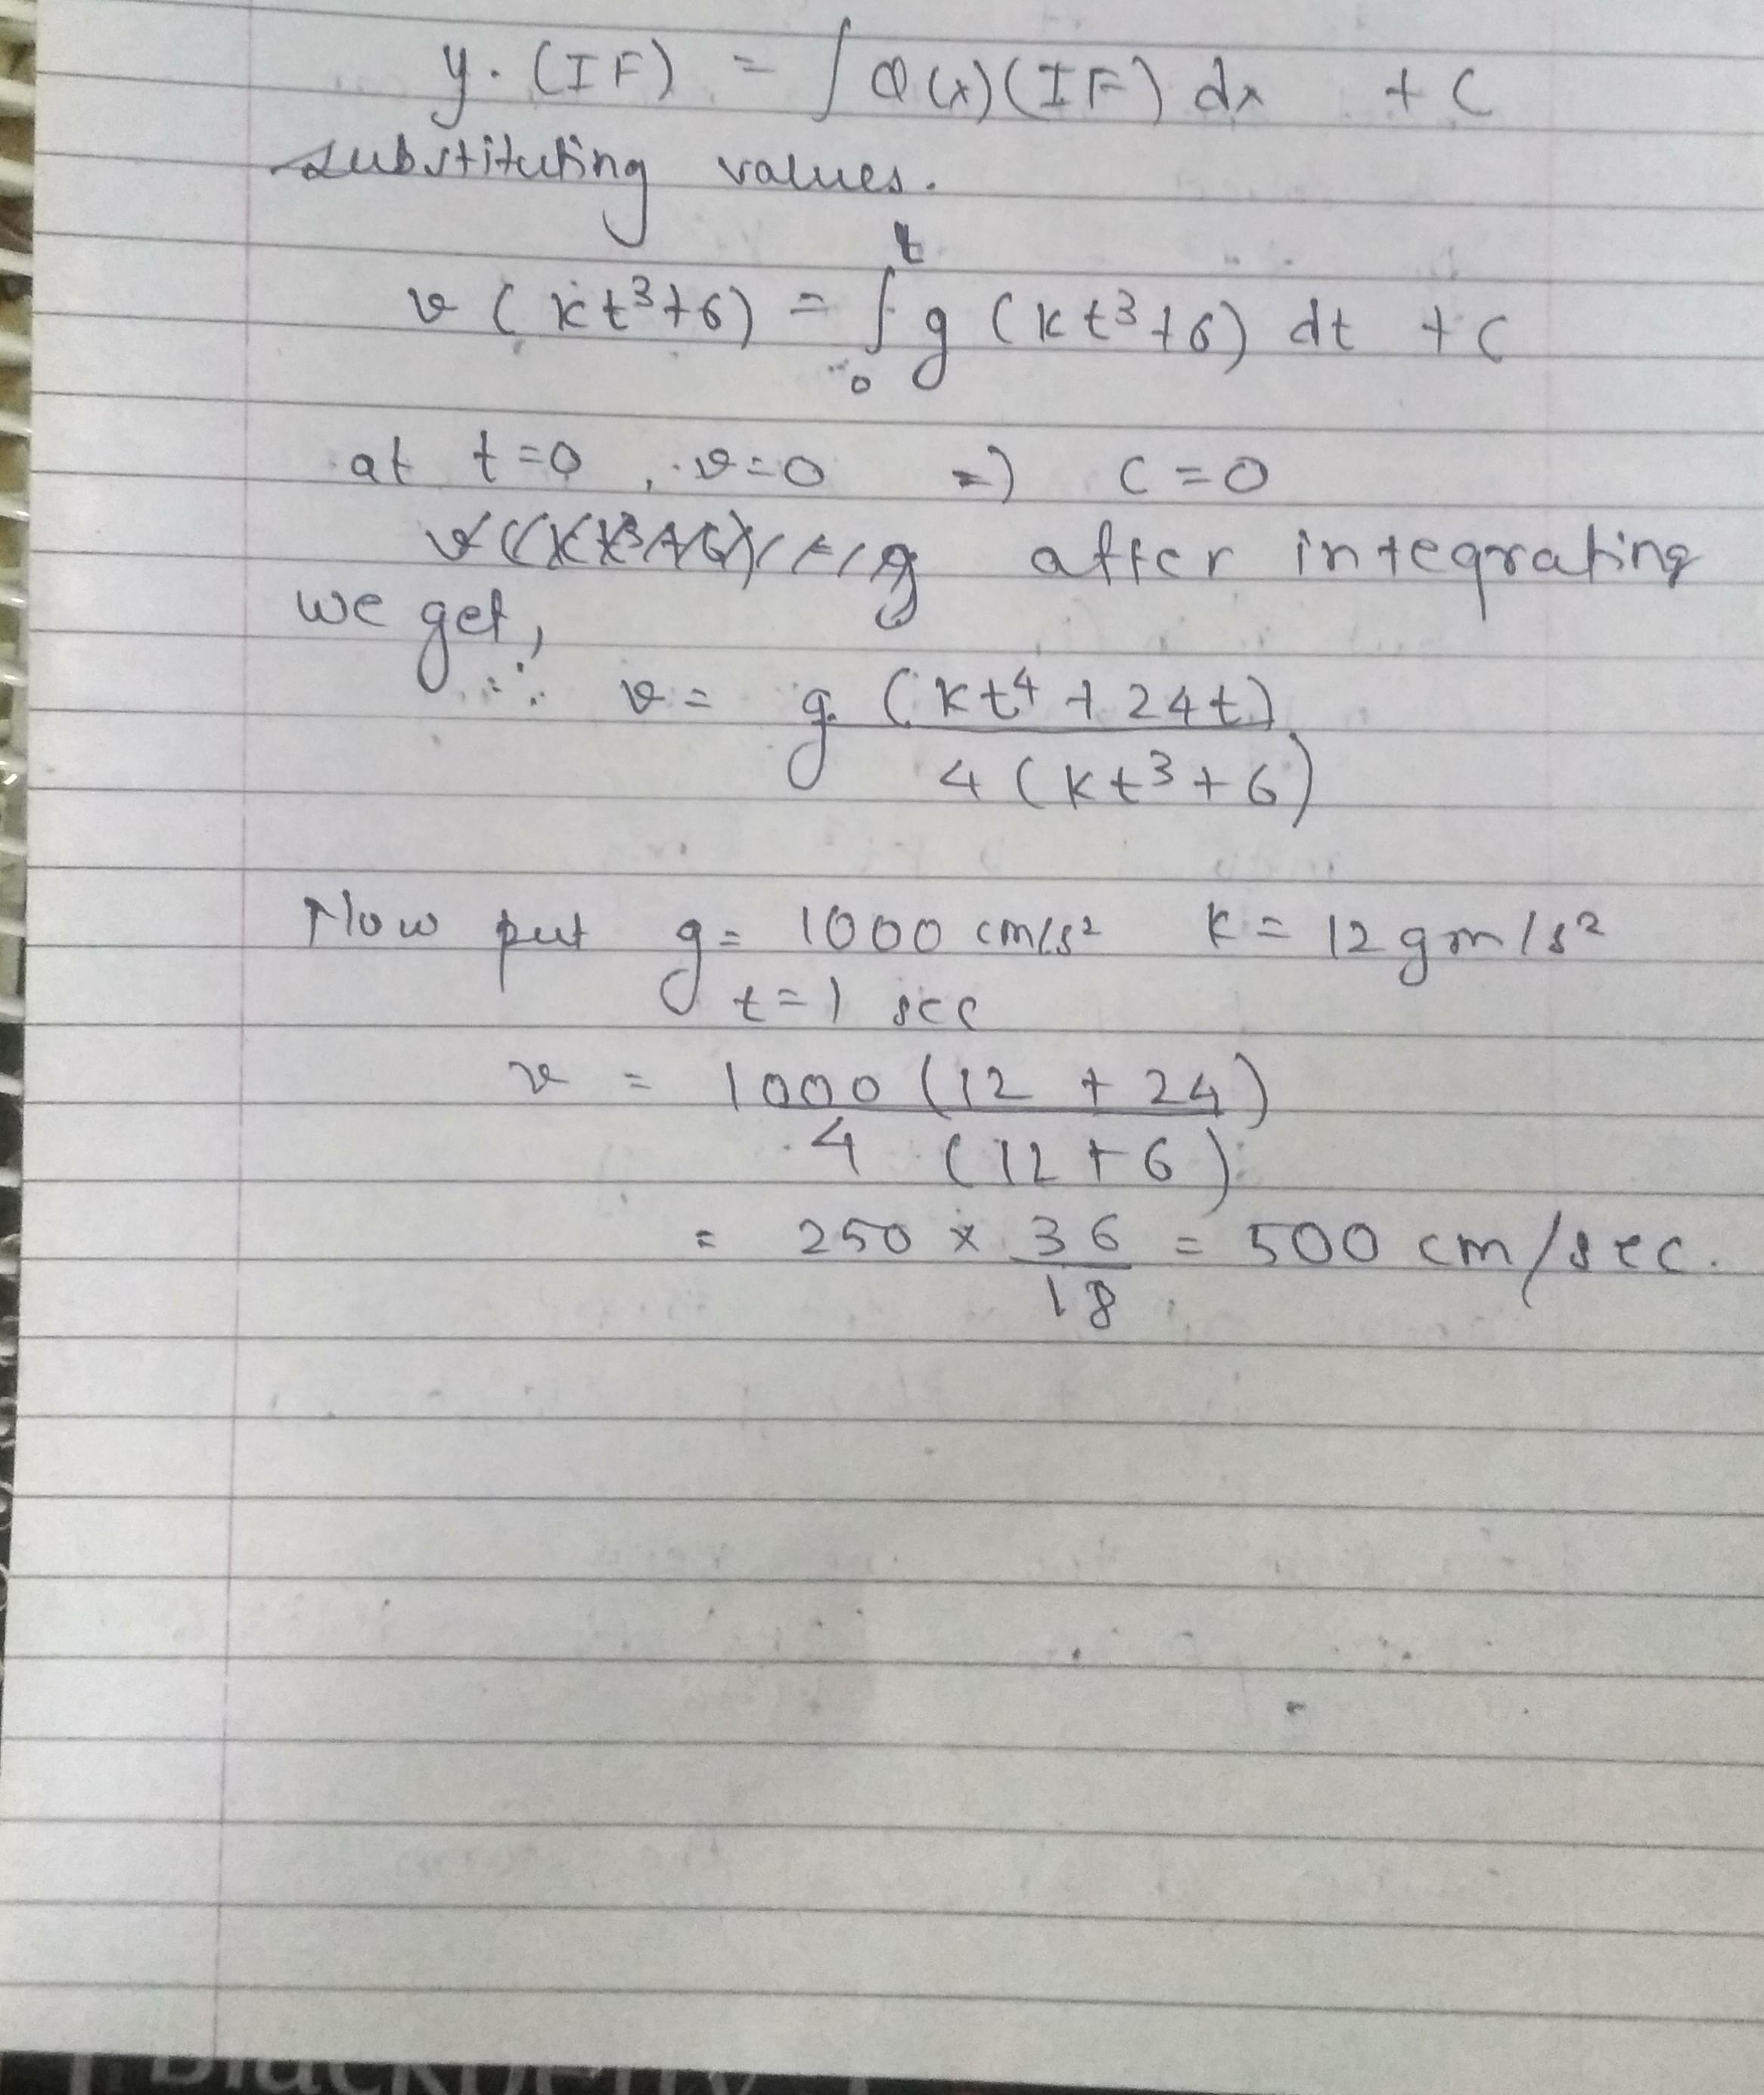 y. (IF) = ∫ Q(x)(IF) dx + C
substituting values.
v (kt³+6) = ∫₀ᵗ g (kt³+6) dt + C
at t=0, v=0 => C=0
after integrating
we get,
∴ v = g (kt⁴ + 24t) / 4 (kt³+6)
Now put g = 1000 cm/s² K = 12 gm/s²
t=1 sec
v = 1000 (12 + 24) / 4 (12+6)
= 250 × 36/18 = 500 cm/sec.